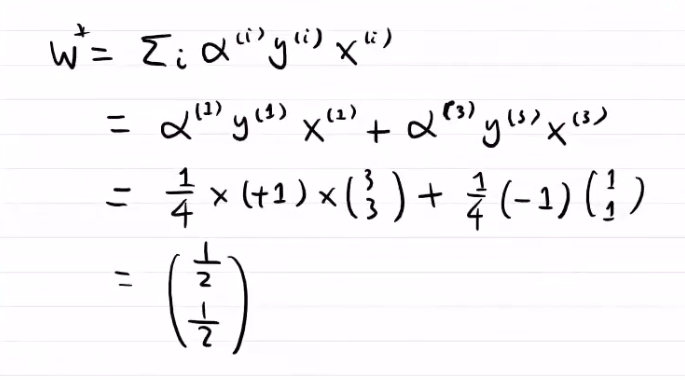 w* = Σᵢ α⁽ⁱ⁾ y⁽ⁱ⁾ x⁽ⁱ⁾
= α⁽¹⁾ y⁽¹⁾ x⁽¹⁾ + α⁽³⁾ y⁽³⁾ x⁽³⁾
= 1/4 × (+1) × (3 3) + 1/4 (-1) (1 1)
= (1/2 1/2)